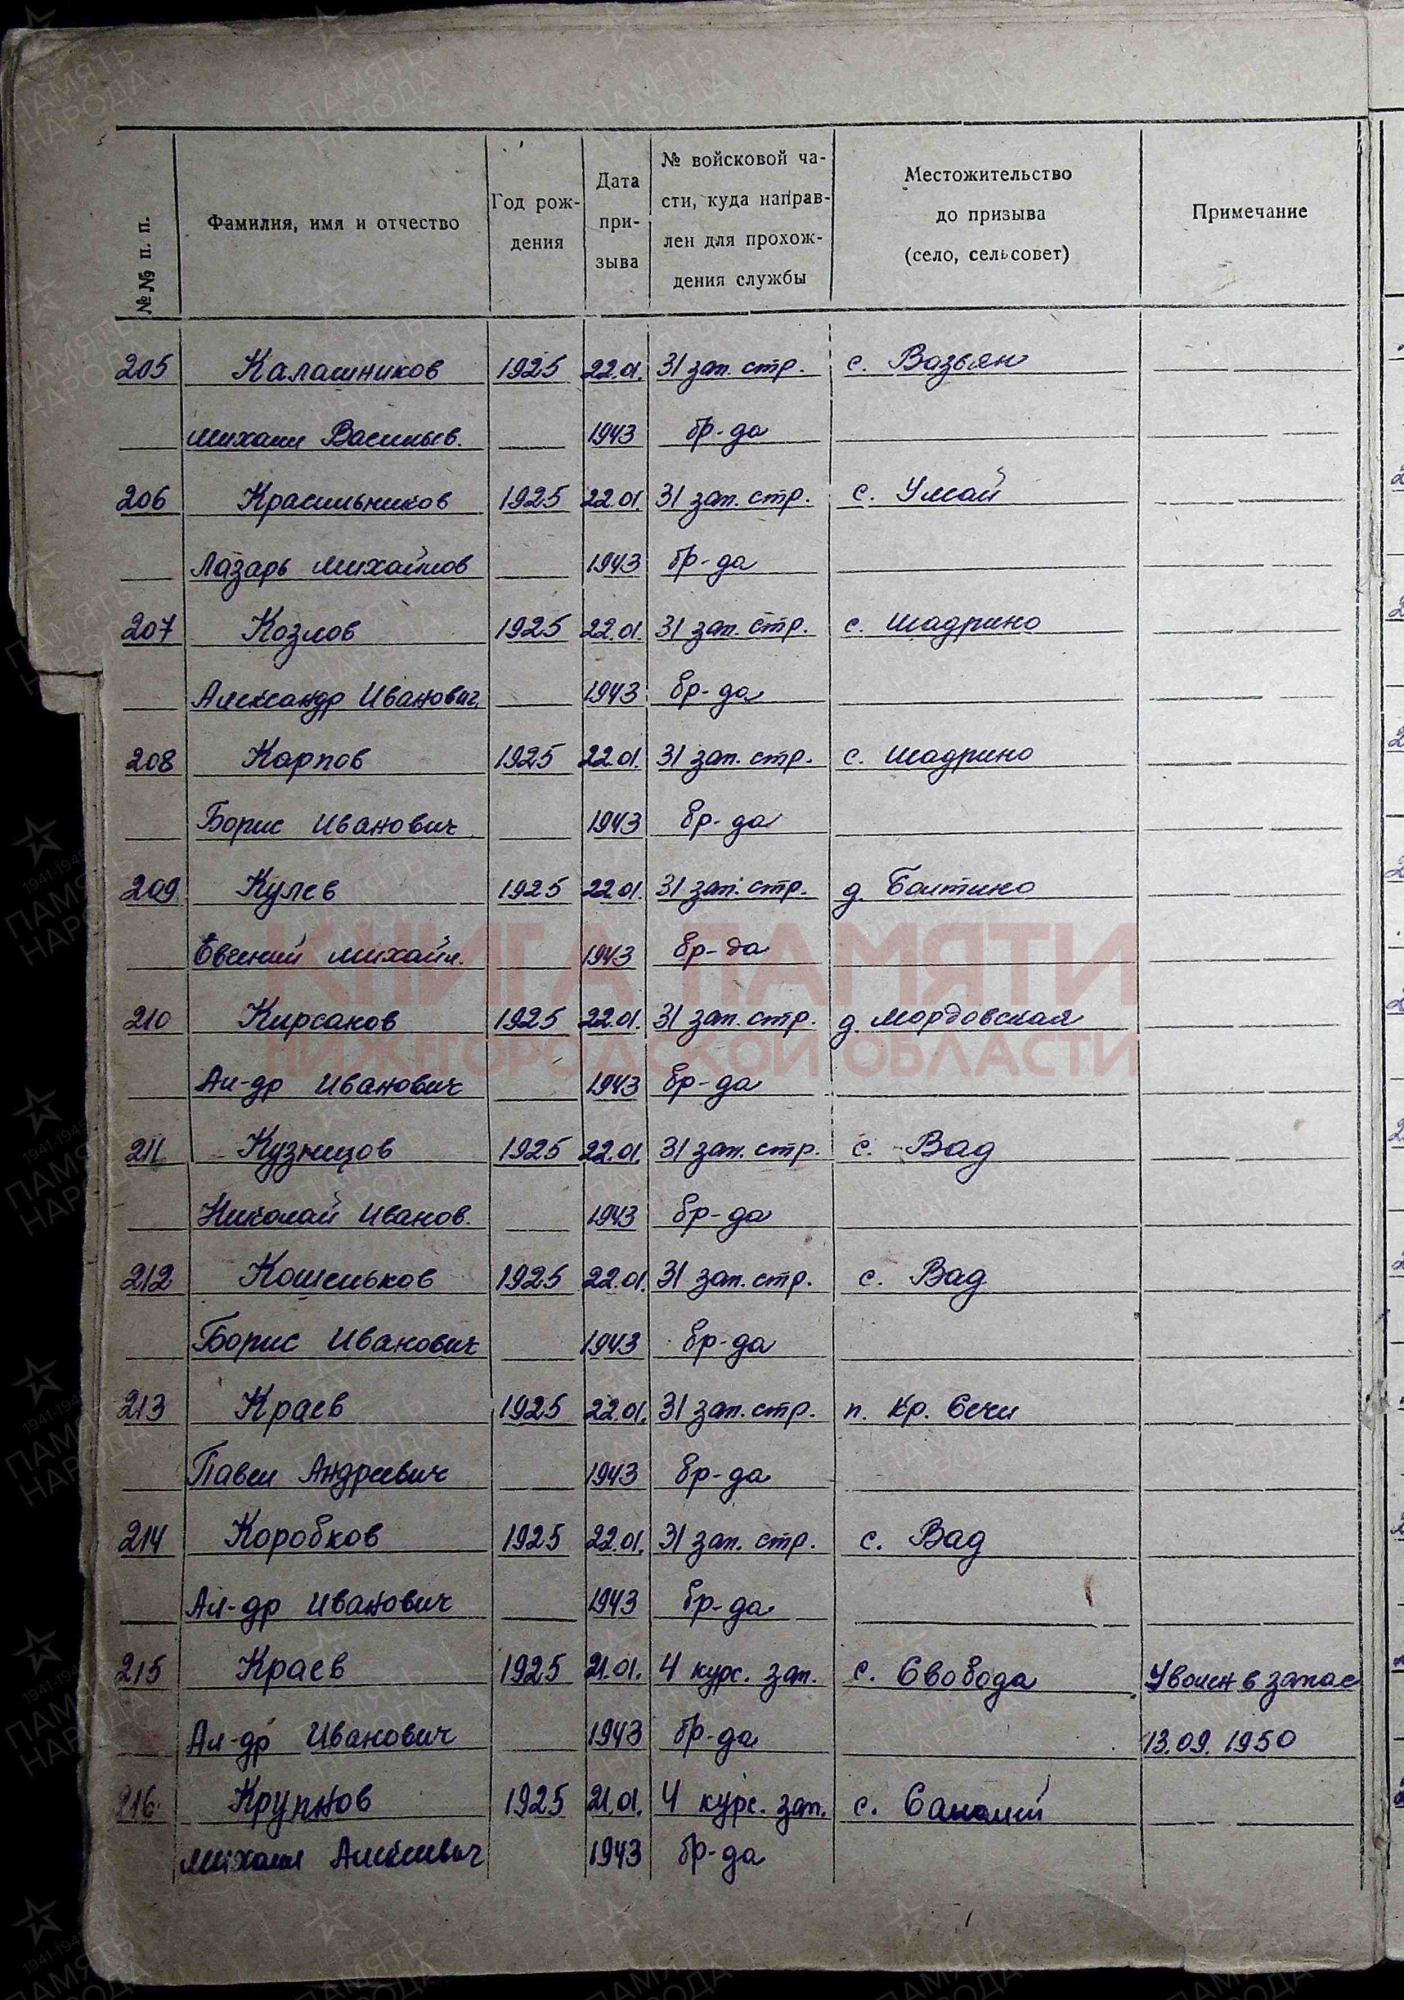 №№ п. п.
Фамилия, имя и отчество
Год рож-
дения
Дата
при-
зыва
№ войсковой ча-
сти, куда направ-
лен для прохож-
дения службы
Местожительство
до призыва
(село, сельсовет)
Примечание
205 Калашников 1925 22.01. 31 зап. стр. с. Вазьян
Михаил Васильев. 1943 бр-да
206 Красильников 1925 22.01. 31 зап. стр. с. Умай
Лазарь Михайлов 1943 бр-да
207 Козлов 1925 22.01. 31 зап. стр. с. Шадрино
Александр Иванович 1943 бр-да
208 Карпов 1925 22.01. 31 зап. стр. с. Шадрино
Борис Иванович 1943 бр-да
209 Кулев 1925 22.01. 31 зап. стр. д. Болтино
Евгений Михайл. 1943 бр-да
КНИГА ПАМЯТИ
210 Кирсанов 1925 22.01. 31 зап. стр. д. Мордовская
НИЖЕГОРОДСКОЙ ОБЛАСТИ
Ал-др Иванович 1943 бр-да
211 Кузнецов 1925 22.01. 31 зап. стр. с. Вад
Николай Иванов. 1943 бр-да
212 Кошельков 1925 22.01. 31 зап. стр. с. Вад
Борис Иванович 1943 бр-да
213 Краев 1925 22.01. 31 зап. стр. п. Кр. Сечи
Павел Андреевич 1943 бр-да
214 Коробков 1925 22.01. 31 зап. стр. с. Вад
Ал-др Иванович 1943 бр-да
215 Краев 1925 21.01. 4 курс. зап. с. Свобода Уволен в запас
Ал-др Иванович 1943 бр-да 13.09. 1950
216 Крупнов 1925 21.01. 4 курс. зап. с.
Михаил Алексеевич 1943 бр-да